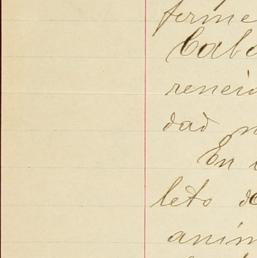 ferme
Cabo
reneid
dad n
En
leto de
anim